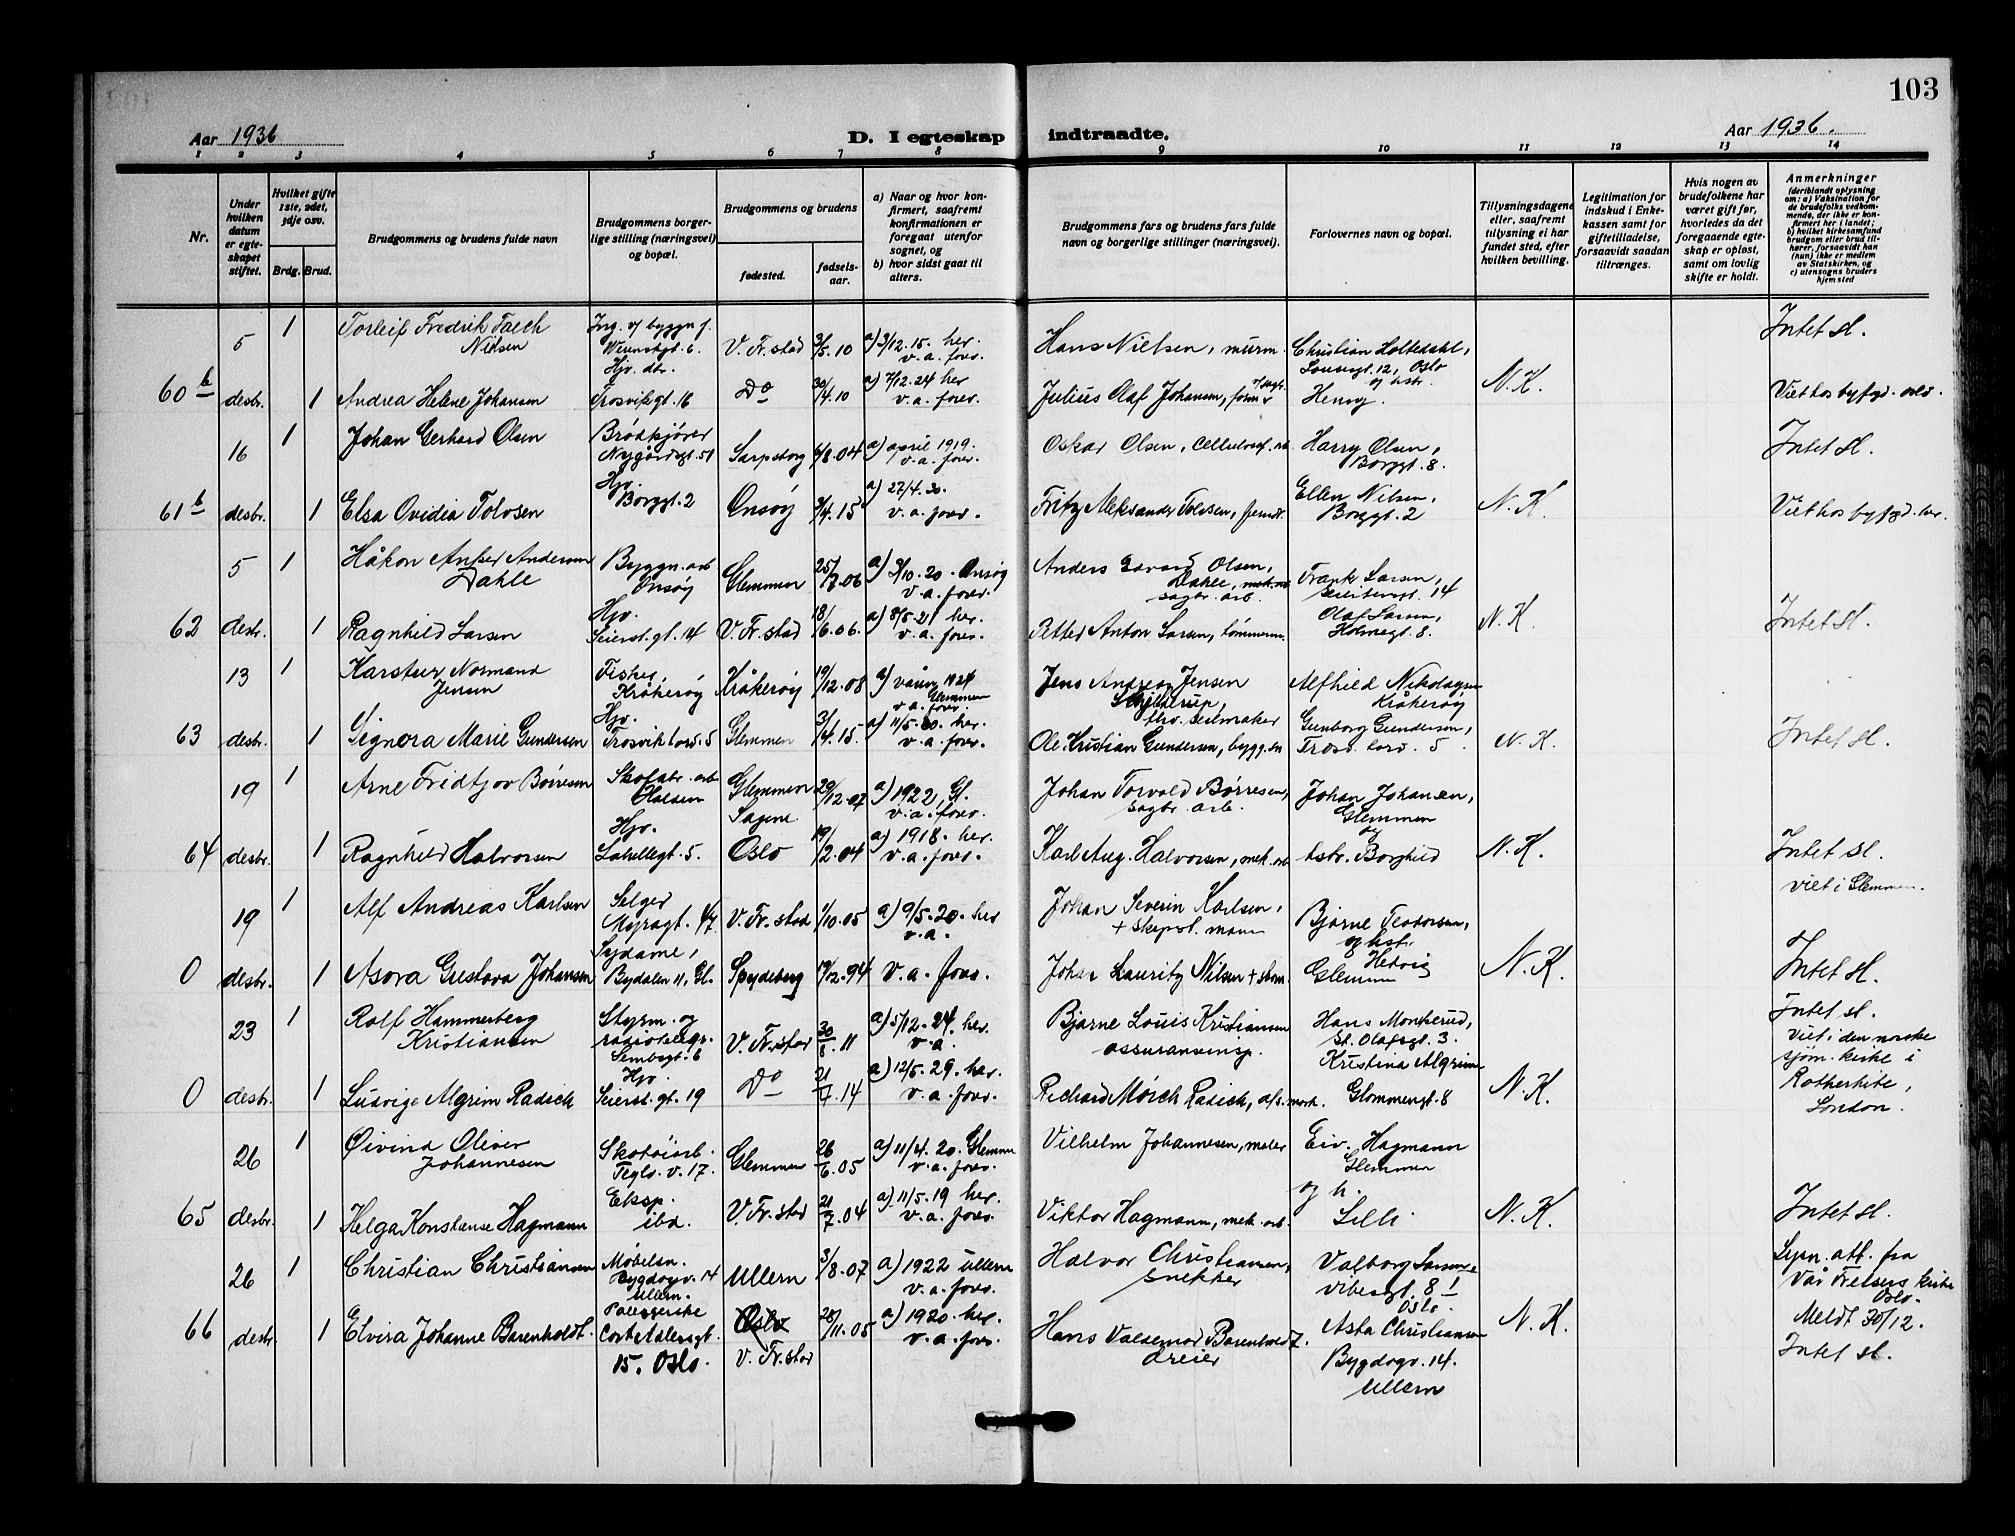 103
Aar 1936
D. I egteskap indtraadte.
Aar 1936.
1 2 3 4 5 6 7 8 9 10 11 12 13 14
Nr.
Under hvilken datum er egteskapet stiftet.
Hvilket gifte 1ste, 2det, 3dje osv.
Brdg. Brud.
Brudgommens og brudens fulde navn
Brudgommens borgerlige stilling (næringsvei) og bopæl.
Brudgommens og brudens
fødested.
fødselsaar.
a) Naar og hvor konfirmert, saafremt konfirmationen er foregaat utenfor sognet, og
b) hvor sidst gaat til alters.
Brudgommens fars og brudens fars fulde navn og borgerlige stillinger (næringsvei).
Forlovernes navn og bopæl.
Tillysningsdagene eller, saafremt tillysning ei har fundet sted, efter hvilken bevilling.
Legitimation for indskud i Enkekassen samt for giftetilladelse, forsaavidt saadan tiltrænges.
Hvis nogen av brudefolkene har været gift før, hvorledes da det foregaaende egteskap er opløst, samt om lovlig skifte er holdt.
Anmerkninger (deriblandt oplysning om: a) Vaksination for de brudefolks vedkommende, der ikke er konfirmert her i landet; b) hvilket kirkesamfund brudgom eller brud tilhører, forsaavidt han (hun) ikke er medlem av Statskirken, og c) utensogns bruders hjemsted
5 1 Torleif Fredrik Falch Nielsen
Ing. v/ byggn. f.
V. Fr.stad 3/5.10
a) 3/12.15. her. v.a. forr.
Hans Nielsen, murm.
Christian Holtedahl,
12, Oslo
Intet sl.
60 b desbr. 1 Andrea Helene Johansen
Hjv. dtr.
Trosvikgt. 16
Do 30/4.10
a) 7/12.24 her v.a. forr.
Julius Olaf Johansen, form.
og hstr. Henny.
N.K.
Viet hos byfgd. Oslo.
16 1 Johan Gerhard Olsen
Brødkjører
Nygårdsgt. 51
Sarpsborg 6/8.04
a) april 1919. v.a. forr.
Oskar Olsen, Cellulosef. arb.
Harry Olsen,
Borggt. 8.
Intet sl.
61 b desbr. 1 Elsa Ovidia Tolvsen
Hjv. Borggt. 2
Onsøy 3/4.15
a) 27/4.30. v.a. forr.
Fritz Aleksander Tolvsen,
Ellen Nilsen,
Borggt. 2
N.K.
Viet hos byfgd. her.
5 1 Håkon Anker Andersen Dahle
Byggn. arb Onsøy
Glemmen 25/7.06
a) 3/10.20. Onsøy v.a. forr.
Anders Olsen, Dahle,
sagbr. arb.
Frank Larsen,
Seierstensgt. 14
62 desbr. 1 Ragnhild Larsen
Hjv.
Seierst. gt. 14
V. Fr.stad 18/6.06.
a) 8/5.21 her. v.a. forr.
Petter Anton Larsen, tømmerm.
Olaf Larsen,
Holmegt. 8.
N.K.
Intet sl.
13 1 Karsten Normand Jensen
Fisker Kråkerøy
Kråkerøy 19/12.08
a) våren 1924 Glemmen v.a. forr.
Jens Andreas Jensen
fhv. seilmaker
Alfhild Nikolaysen
Kråkerøy
63 desbr. 1 Signora Marie Gundersen
Hjv.
Trosviktord. 5
Glemmen 3/4.15.
a) 11/5.30. her. v.a. forr.
Ole Kristian Gundersen, bygg.sn
Gunborg Gundersen,
Trosv. tord. 5
N.K.
Intet sl.
19 1 Arne Fridtjov Børresen
Skofabr. arb.
Glemmen 29/12.07
a) 1922, Gl. v.a. forr.
Johan Torvald Børresen,
sagbr. arb.
Johan Johansen,
Glemmen
64 desbr. 1 Ragnhild Halvorsen
Hjv.
Lahellegt. 5.
Sagene Oslo 19/2.04
a) 1918. her. v.a. forr.
Karl Aug. Halvorsen, mek. arb
og hstr. Borghild
N.K.
Intet sl.
viet i Glemmen.
19 1 Alf Andreas Karlsen
Selger
Myragt. 47.
V. Fr.stad 1/10.05
a) 9/5.20. her v.a.
Johan Severin Karlsen,
+ skipst. mann
Bjarne Teodorsen,
og hstr. Hedvig
Glemmen
0 desbr. 1 Asora Gustava Johansen
Sydame,
Bydalen 11, Gl.
Spydeberg 19/12.94
v.a. forr.
Johan Lauritz Nilsen +
N.K.
Intet sl.
23 1 Rolf Hammerberg Kristiansen
Styrm. og radiotelegr.
Lembsgt. 6
V. Fr.stad 30/8.11
a) 5/12.24. her. v.a.
Bjarne Louis Kristiansen
assuranseinsp.
Hans Monserud,
St. Olafsgt. 3.
Intet sl.
Viet i den norske sjøm. kirke i Rotherhite, London.
0 desbr. 1 Ludvige Algrim Radich
Hjv.
Seierst. gt. 19
Do 21/7.14
a) 12/5.29. her. v.a. forr.
Richard Mørch Radich,
Kristina Algrim
Glommengt. 8
N.K.
26 1 Øivind Oliver Johannesen
Skotøiarb.
Teglv. v. 17.
Glemmen 26/6.05
a) 11/4.20. Glemmen v.a. forr.
Vilhelm Johannesen, maler
Eiv. Hagmann
Glemmen
65 desbr. 1 Helga Konstanse Hagmann
Eksp. ibd.
V. Fr.stad 21/7.04
a) 11/5.19 her. v.a. forr.
Viktor Hagmann, mek. arb.
og h. Lilli
N.K.
Intet sl.
26 1 Christian Christiansen
Møbelsn.
Bygdøgv. 14 Ullern.
Ullern 3/8.07
a) 1922 Ullern v.a. forr.
Halvor Christiansen,
snekker
Valborg Larsen,
Vibesgt. 8 I
Oslo.
Lysn. att. fra Vår Frelsers kirke Oslo.
66 desbr. 1 Elvira Johanne Barenholdt.
Cort Adlersgt. 15. Oslo.
Oslo V. Fr.stad 28/11.05
a) 1920. her. v.a. forr.
Hans Valdemar Barenholdt.
dreier
Asta Christiansen
Bygdøgv. 14.
Ullern
N.K.
Meldt 30/12.
Intet sl.